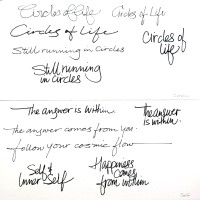 Circles of Life
Circles of Life
Circles of Life
Circles of
life
Still running in Circles
Still running
in circles
The answer is within.
the answer
is within.
the answer comes from you.
follow your cosmic flow
Self &
Inner Self
Happiness
comes
from within